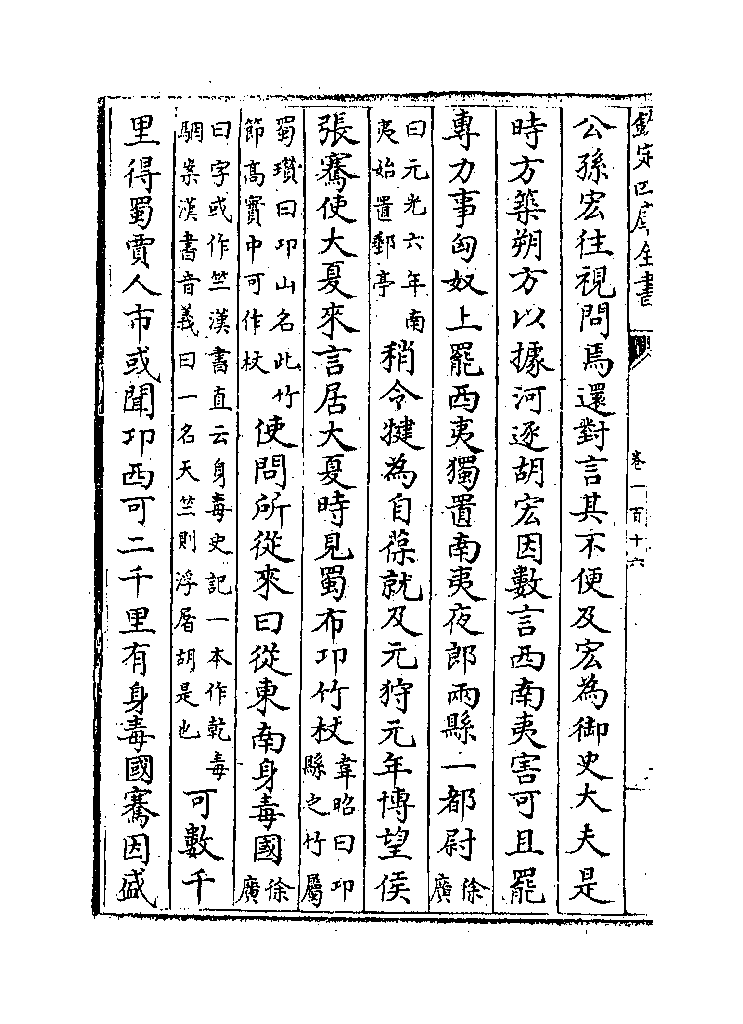 欽定四庫全書 卷一百十六
公孫宏往視問焉還對言其不便及宏為御史大夫是
時方築朔方以據河逐胡宏因數言西南夷害可且罷
專力事匈奴上罷西夷獨置南夷夜郎兩縣一都尉徐廣
曰元光六年南夷始置郵亭稍令犍為自葆就及元狩元年博望侯
張騫使大夏來言居大夏時見蜀布邛竹杖韋昭曰邛縣之竹屬
蜀瓚曰邛山名此竹節高實中可作杖使問所從來曰從東南身毒國徐廣
曰字或作竺漢書直云身毒史記一本作乾毒駰案漢書音義曰一名天竺則浮屠胡是也可數千
里得蜀賈人市或聞邛西可二千里有身毒國騫因盛